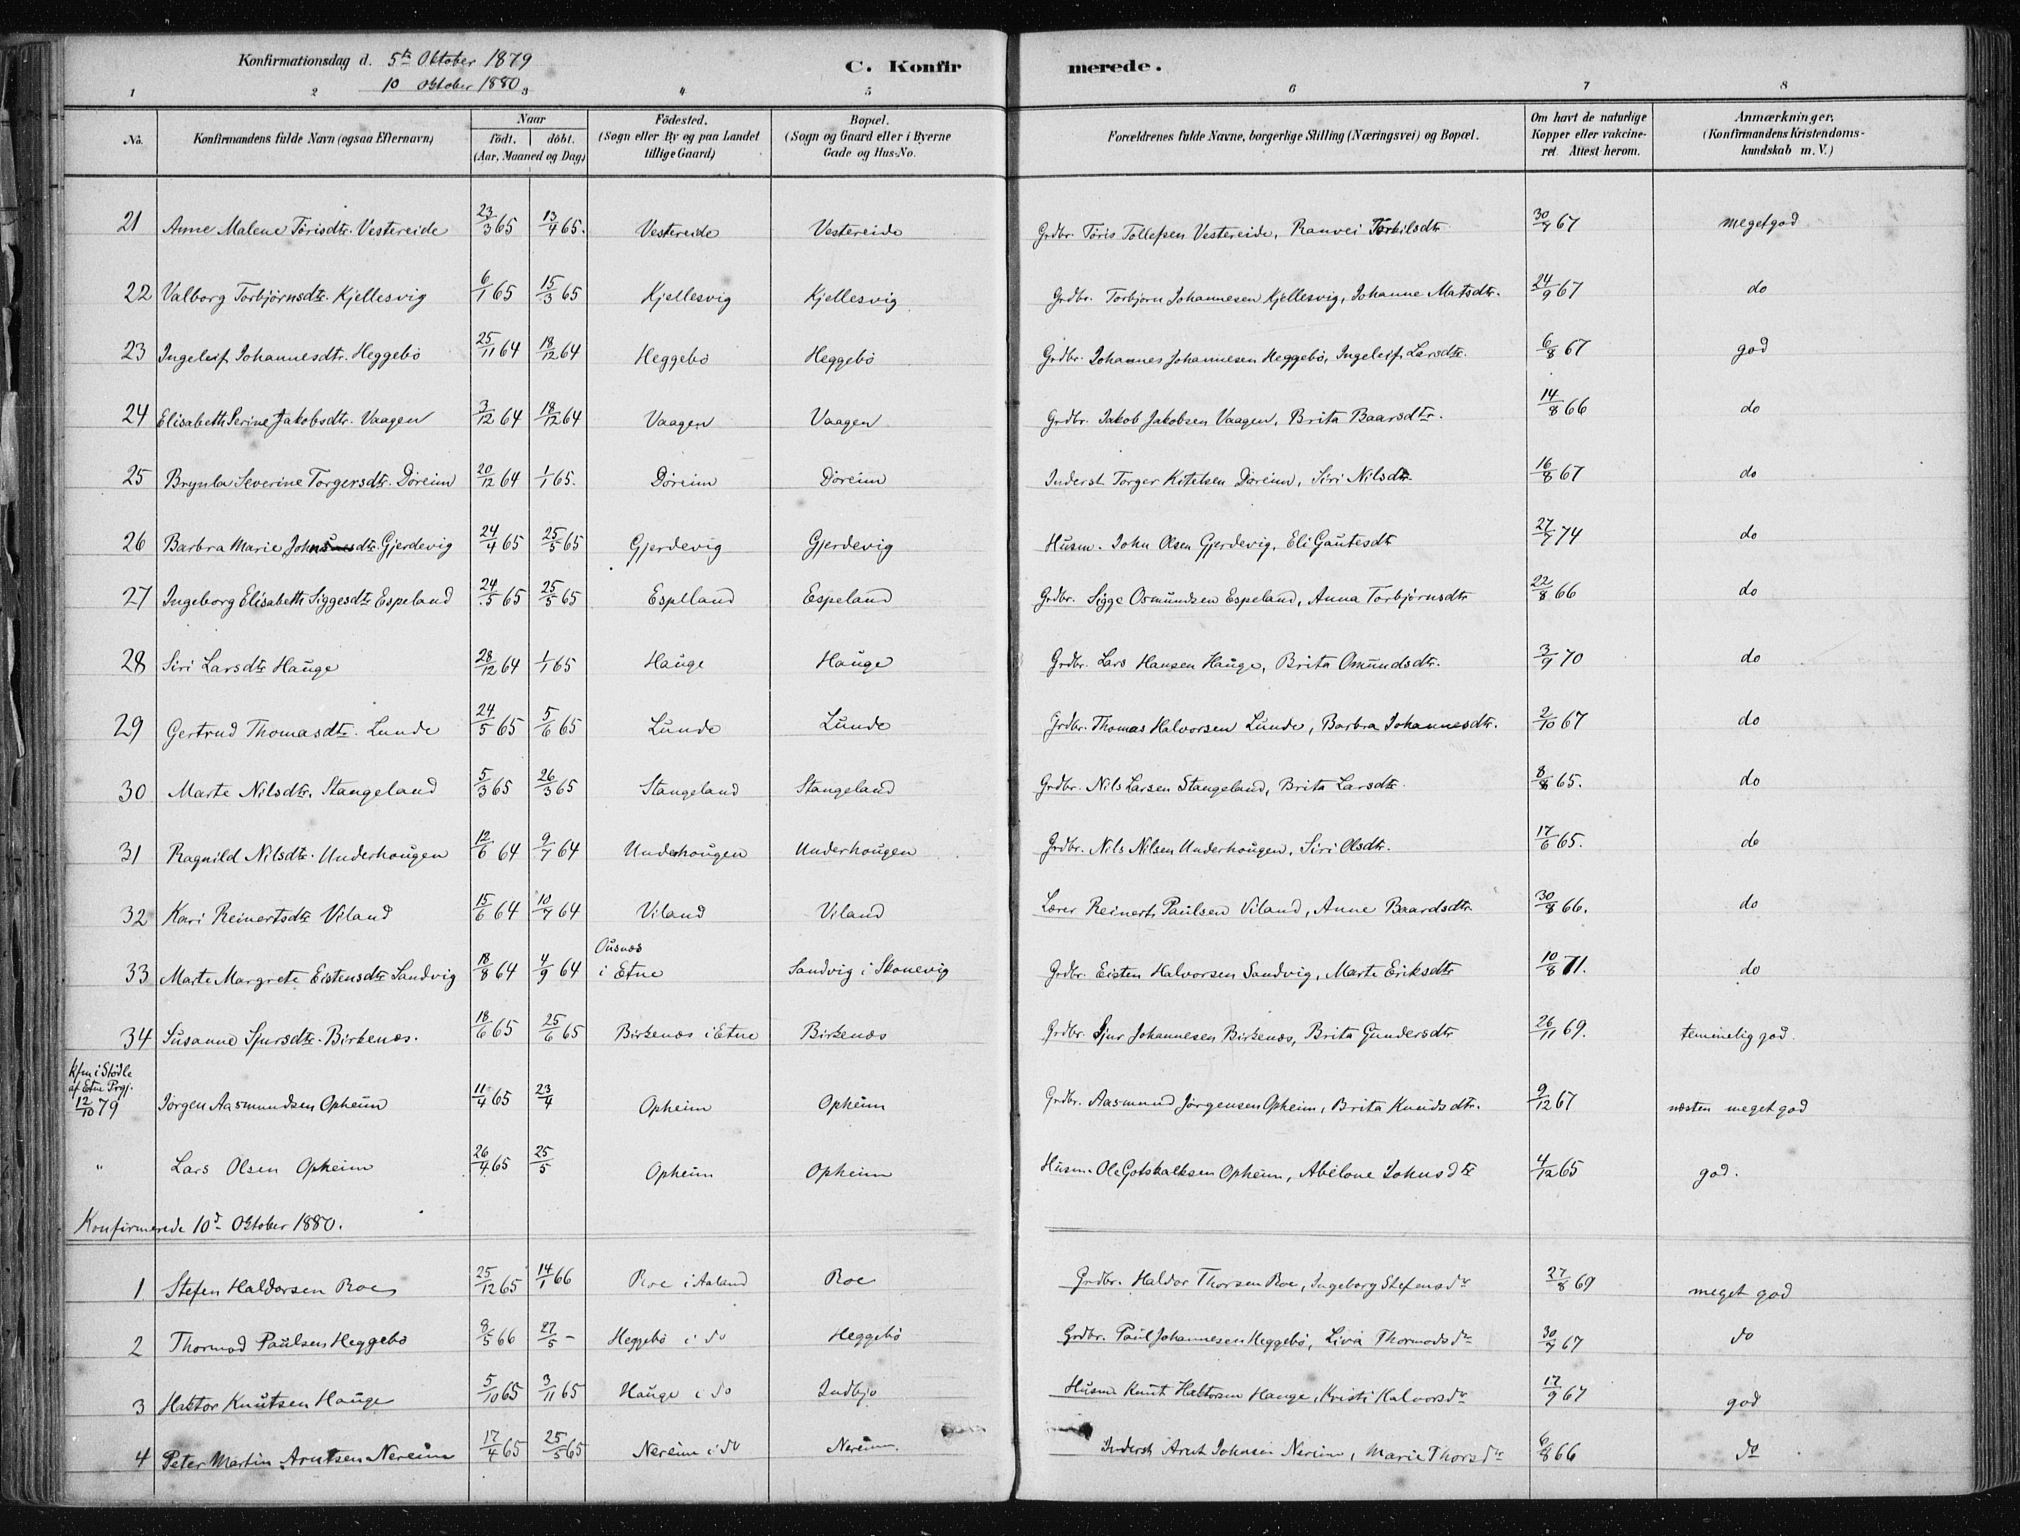 Konfirmationsdag d. 5te Oktober 1879
10 Oktober 1880
C. Konfirmerede.
1 2 3 4 5 6 7 8
No. Konfirmandens fulde Navn (ogsaa Efternavn) Naar födt. döbt. (Aar, Maaned og Dag) Födested. (Sogn eller By og paa Landet tillige Gaard) Bopæl. (Sogn og Gaard eller i Byerne Gade og Hus-No. Forældrenes fulde Navne, borgerlige Stilling (Næringsvei) og Bopæl. Om havt de naturlige Kopper eller vakcineret. Attest herom. Anmærkninger, (Konfirmandens Kristendomskundskab m. V.)
21 Anne Malene Törisdtr. Vestereide 23/3 65 13/4 65. Vestereide Vestereide Grdbr. Töris Tollefsen Vestereide, Ranvei Torkilsdtr 30/7 67 meget god
22 Valborg Torbjörnsdtr. Kjellesvig 6/1 65 15/3 65 Kjellesvig Kjellesvig Grdbr. Torbjörn Johannesen Kjellesvig, Johanne Matsdtr. 24/9 67 do
23 Ingeleif Johannesdtr. Heggebö 25/11 64 18/12 64 Heggebö Heggebö Grdbr. Johannes Johannesen Heggebö, Ingeleif Larsdtr. 6/8 67 god
24 Elisabeth Serine Jakobsdtr. Vaagen 3/12 64 18/12 64 Vaagen Vaagen Grdbr. Jakob Jakobsen Vaagen, Brita Baarsdtr. 14/8 66 do
25 Brynla Severine Torgersdtr. Döreim 20/12 64 1/1 65. Döreim Döreim Inderst Torger Kitelsen Döreim, Siri Nilsdtr 16/8 67 do
26 Barbra Marie Johnsdtr. Gjerdevig 24/4 65 25/5 65 Gjerdevig Gjerdevig Husm. John Olsen Gjerdevig, Eli Gautesdtr 27/7 74 do
27 Ingeborg Elisabeth Siggesdtr Espeland 24/5 65 25/5 65 Espelland Espeland Grdbr. Sigge Osmundsen Espeland, Anna Torbjörnsdtr 22/8 66 do
28 Siri Larsdtr Hauge 28/12 64 1/1 65 Hauge Hauge Grdbr. Lars Hansen Hauge, Brita Omundsdtr. 3/9 70 do
29 Gertrud Thomasdtr. Lunde 24/5 65 5/6 65 Lunde Lunde Grdbr. Thomas Halvorsen Lunde, Barbra Johannesdtr. 2/10 67 do
30 Marte Nilsdtr. Stangeland 5/3 65 26/3 65 Stangeland Stangeland Grdbr. Nils Larsen Stangeland, Brita Larsdtr. 8/8 65. do
31 Ragnild Nilsdtr. Underhougen 12/6 64 9/7 64 Underhougen Underhougen Grdbr. Nils Nilsen Underhougen, Siri Olsdtr. 17/6 65. do
32 Kari Reinertsdtr Viland 15/6 64 10/7 64 Viland Viland Lærer Reinert Paulsen Viland, Anne Baardsdtr 30/8 66. do
33 Marte Margrete Eistensdtr Sandvig 18/8 64 4/9 64 Ousnæs i Etne Sandvig i Skonevig Grdbr. Eisten Halvorsen Sandvig, Marte Eriksdtr 10/8 71. do
34 Susanne Sjursdtr. Birkenæs. 18/6 65 25/6 65 Birkenæs i Etne Birkenæs Grdbr. Sjur Johannesen Birkenæs, Brita Gundersdtr 26/11 69. temmelig god.
kfm i Stödle af Etne Prgj. 12/10 79 Jörgen Aasmundsen Opheim 11/4 65 23/4 Opheim Opheim Grdbr. Aasmund Jörgensen Opheim, Brita Knudsdtr. 9/12 67 næsten meget god
" Lars Olsen Opheim 26/4 65 25/5 Opheim Opheim Husm. Ole Gotskalksen Opheim, Abelone Johnsdtr 4/12 65 god.
Konfirmerede 10d Oktober 1880.
1 Stefen Haldorsen Roe 25/12 65 14/1 66 Roe i Aaland Roe Grdbr. Haldor Thorsen Roe, Ingeborg Stefensdr 27/8 69 meget god
2 Thormod Paulsen Heggebö 8/5 66 27/5 - Heggebö i do Heggebö Grdbr. Paul Johannesen Heggebö, Livia Thormodsdr 30/7 67 do
3 Haktor Knutsen Hauge 5/10 65 3/11 65 Hauge i do Indbjo Husm Knut Haktorsen Hauge, Kristi Halvorsdr 17/9 67 god
4 Peter Martin Arntsen Nereim 17/4 65 25/5 65 Nereim i do Nereim. Inderst Arnt Johnsen Nereim, Marie Thorsdr 6/8 66 do